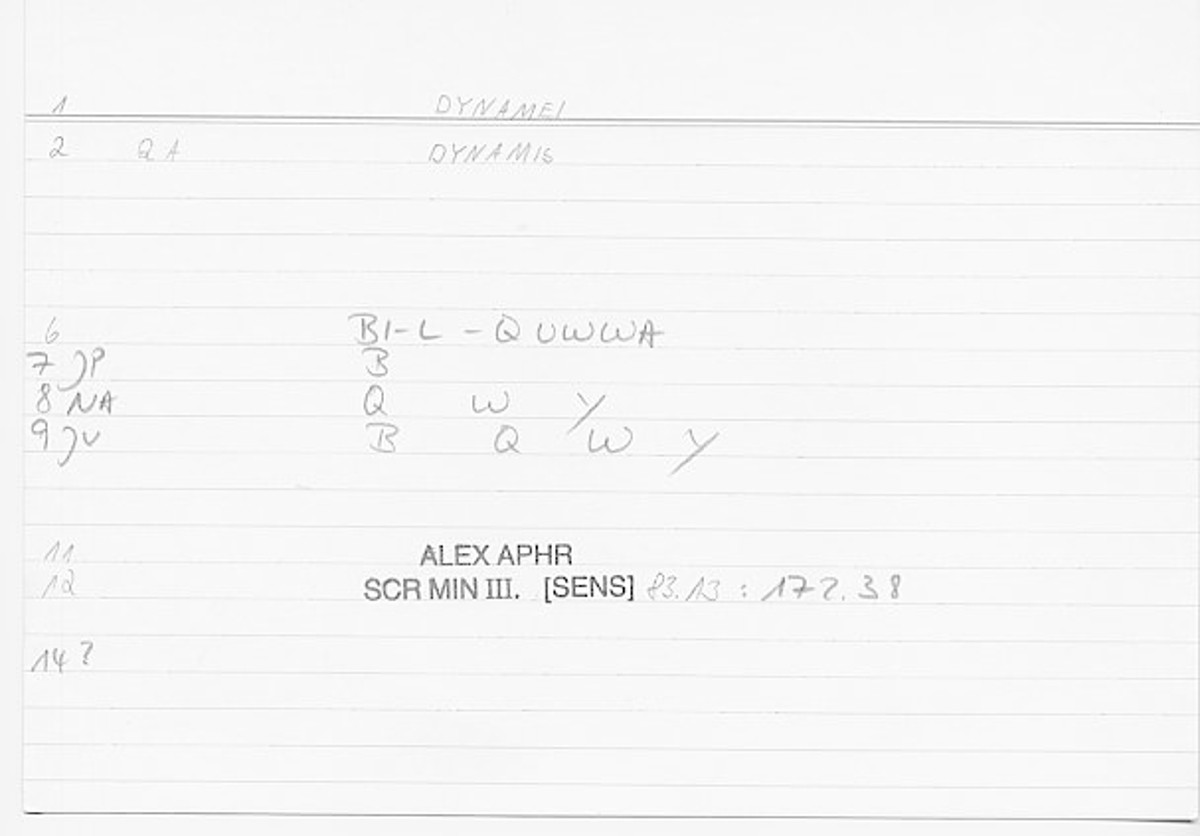 1 DYNAMEI
2 QA DYNAMIS
6 BI-L-QUWWA
7 JP B
8 NA Q W Y
9 JV B Q W Y
11 ALEX APHR
12 SCR MIN III. [SENS] 83.13 : 172.38
14?